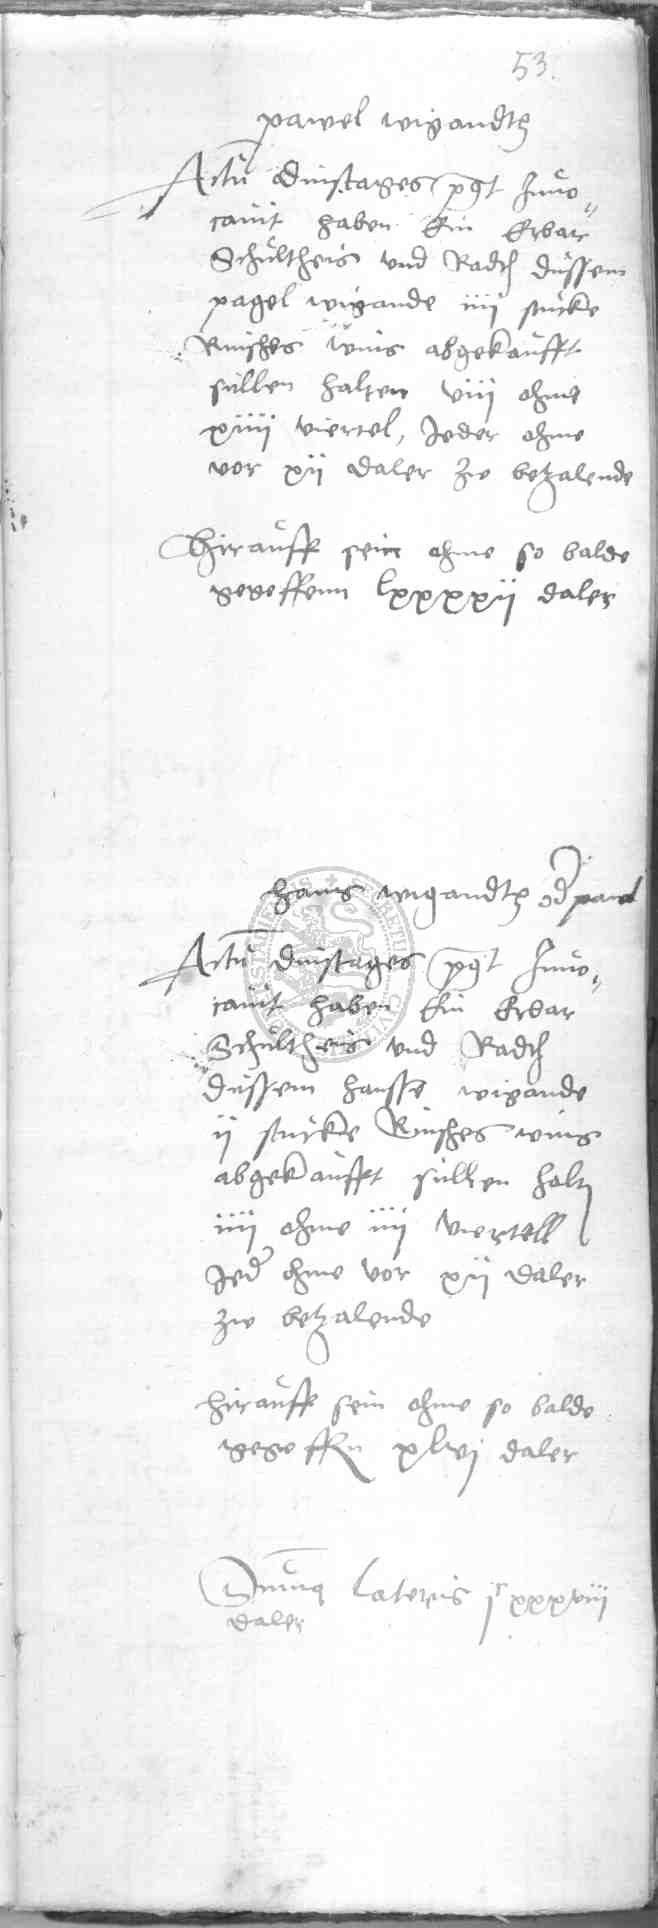 53.
pawel wigandtz
Actu dinstages pgt Invo-
cavit haben Ein Erbar
Schultheis vnd Radth dussem
pagel wigande iiij stucke
Rinsches wins abgekaufft
sullen halten viij ohme
xiiij viertel, Jeder ohme
vor xij daler zw betzalende
Hirauff sein ohme so balde
gegeffenn lxxxxij daler
hans wigandtz od pawel
Actu dinstages pgt Invo-
cavit haben Ein Erbar
Schultheis vnd Radth
dussem hansse wigande
ij stucke Rinsches wins
abgekaufft sullen halt
iiij ohme iiij viertell
Jed ohme vor xij daler
zw betzalende
hirauff sein ohme so balde
gegeffn xlvj daler
Suma lateris jc xxxviij
daler